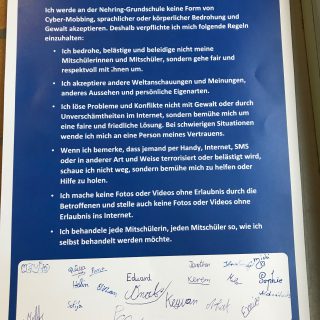 Ich werde an der Nehring-Grundschule keine Form von
Cyber-Mobbing, sprachlicher oder körperlicher Bedrohung und
Gewalt akzeptieren. Deshalb verpflichte ich mich folgende Regeln
einzuhalten:
• Ich bedrohe, belästige und beleidige nicht meine
Mitschülerinnen und Mitschüler, sondern gehe fair und
respektvoll mit ihnen um.
• Ich akzeptiere andere Weltanschauungen und Meinungen,
anderes Aussehen und persönliche Eigenarten.
• Ich löse Probleme und Konflikte nicht mit Gewalt oder durch
Unverschämtheiten im Internet, sondern bemühe mich um
eine faire und friedliche Lösung. Bei schwierigen Situationen
wende ich mich an eine Person meines Vertrauens.
• Wenn ich bemerke, dass jemand per Handy, Internet, SMS
oder in anderer Art und Weise terrorisiert oder belästigt wird,
schaue ich nicht weg, sondern bemühe mich zu helfen oder
Hilfe zu holen.
• Ich mache keine Fotos oder Videos ohne Erlaubnis durch die
Betroffenen und stelle auch keine Fotos oder Videos ohne
Erlaubnis ins Internet.
• Ich behandele jede Mitschülerin, jeden Mitschüler so, wie ich
selbst behandelt werden möchte.
Edward
Sophie
Helen
Keywan